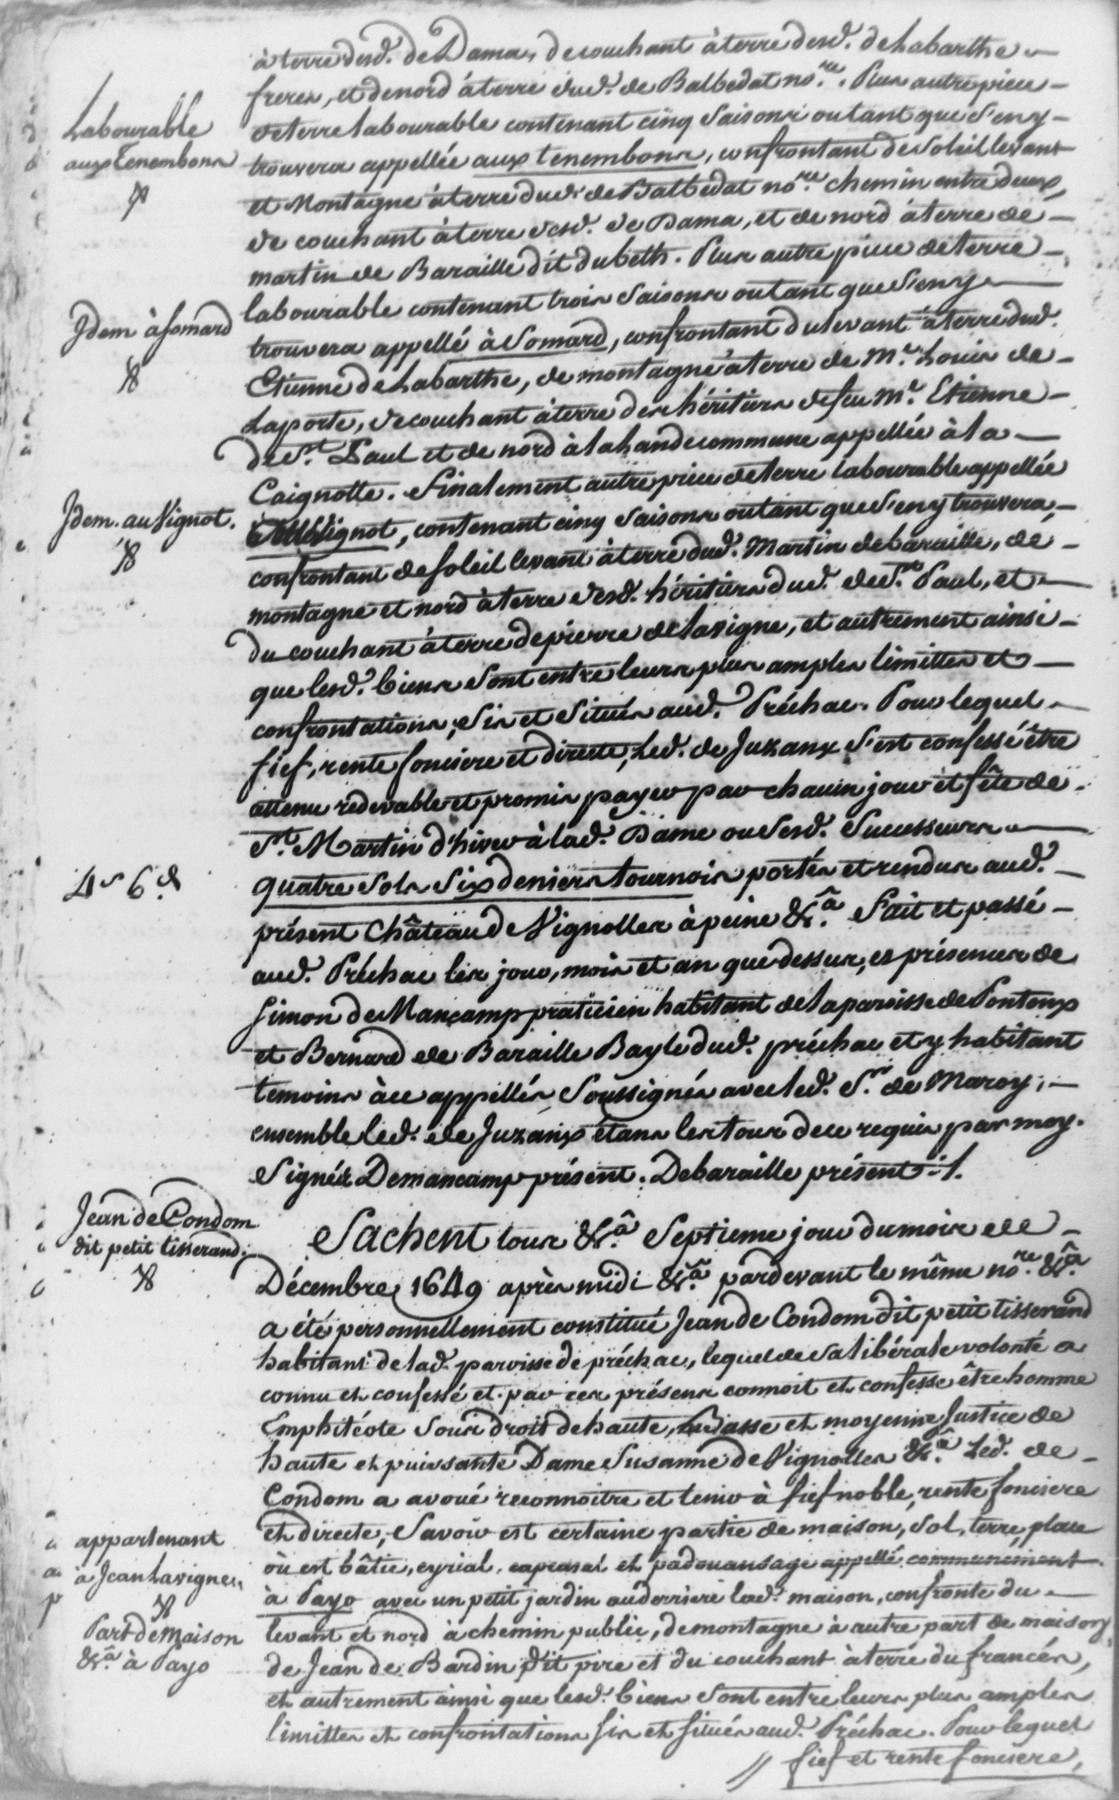 à terre desd. de Dama, de couchant à terre desd. de Labarthe
freres, et de nord à terre dud. de Balbedat no.re. Plus autre piece
Labourable
aux Tenembons
de terre labourable contenant cinq saisons ou tant que s'en y
trouvera appellée aux tenembons, confrontant de soleil levant
et Montagne à terre dud. de Balbedat no.re chemin entre deux,
de couchant à terre desd. de Dama, et de nord à terre de
martin de Baraille dit dubeth. Plus autre piece de terre
labourable contenant trois saisons ou tant que s'en y
Idem à Somard
trouvera appellé à Somard, confrontant du levant à terre dud.
Etienne de Labarthe, de montagne à terre de M.r Louis de
Laporte, de couchant à terre des héritiers de feu M.r Etienne
de S.t Paul et de nord à la Lande commune appellée à la
Caignotte. Finalement autre piece de terre labourable appellée
Idem. au Vignot.
au Vignot, contenant cinq saisons ou tant que s'en y trouvera,
confrontant de soleil levant à terre dud. Martin de baraille, de
montagne et nord à terre desd. héritiers dud. de S.t Paul, et
du couchant à terre de pierre de Lavigne, et autrement ainsi
que lesd. biens sont entre leurs plus amples limittes et
confrontations, sis et situés aud. Préchac. Pour lequel
fief, rente fonciere et directe, led. de Juzanx s'est confessé être
attenu redevable et promis payer par chacun jour et fête de
S.t Martin d'hiver à lad. Dame ou sesd. Successeurs
4 s 6 d.
quatre sols six deniers tournois portés et rendus aud.
présent Château de Vignolles à peine &.ª Fait et passé
aud. Préchac les jour, mois et an que dessus, es présences de
Simon de Mancamp praticien habitant de la paroisse de Pontonx
et Bernard de Baraille Bayle dud. préchac et y habitant
temoins à ce appellés, soussignés avec led. S.r de Maroy,
ensemble led. de Juzanx étans les tous de ce requis par moy.
Signés Demancamp présent. Debaraille présent
Jean de Condom
dit petit tisserand.
Sachent tous &.ª Septieme jour du mois de
Décembre 1649 après midi &.ª pardevant le même no.re &.ª
a été personnellement constitué Jean de Condom dit petit tisserand
habitant de lad. paroisse de préchac, lequel de sa libérale volonté a
connu et confessé et par ces présens connoit et confesse être homme
Emphitéote sous droit de haute, basse et moyenne Justice de
haute et puissante Dame Susanne de Vignolles &.ª Led. de
Condom a avoué reconnoitre et tenir à fief noble, rente fonciere
appartenant
à Jean Lavigne
et directe, Savoir est certaine partie de maison, sol, terre, place
où est bâtie, eyrial, caperal et padouansage appellé communement
à Payo avec un petit jardin au derriere lad. maison, confronte du
Part de maison
&.ª à Payo
levant et nord à chemin public, de montagne à autre part de maison
de Jean de Bardin dit pire et du couchant à terre du francés,
et autrement ainsi que lesd. biens sont entre leurs plus amples
limittes et confrontations sis et situés aud. Préchac. Pour lequel
// fief et rente fonciere,